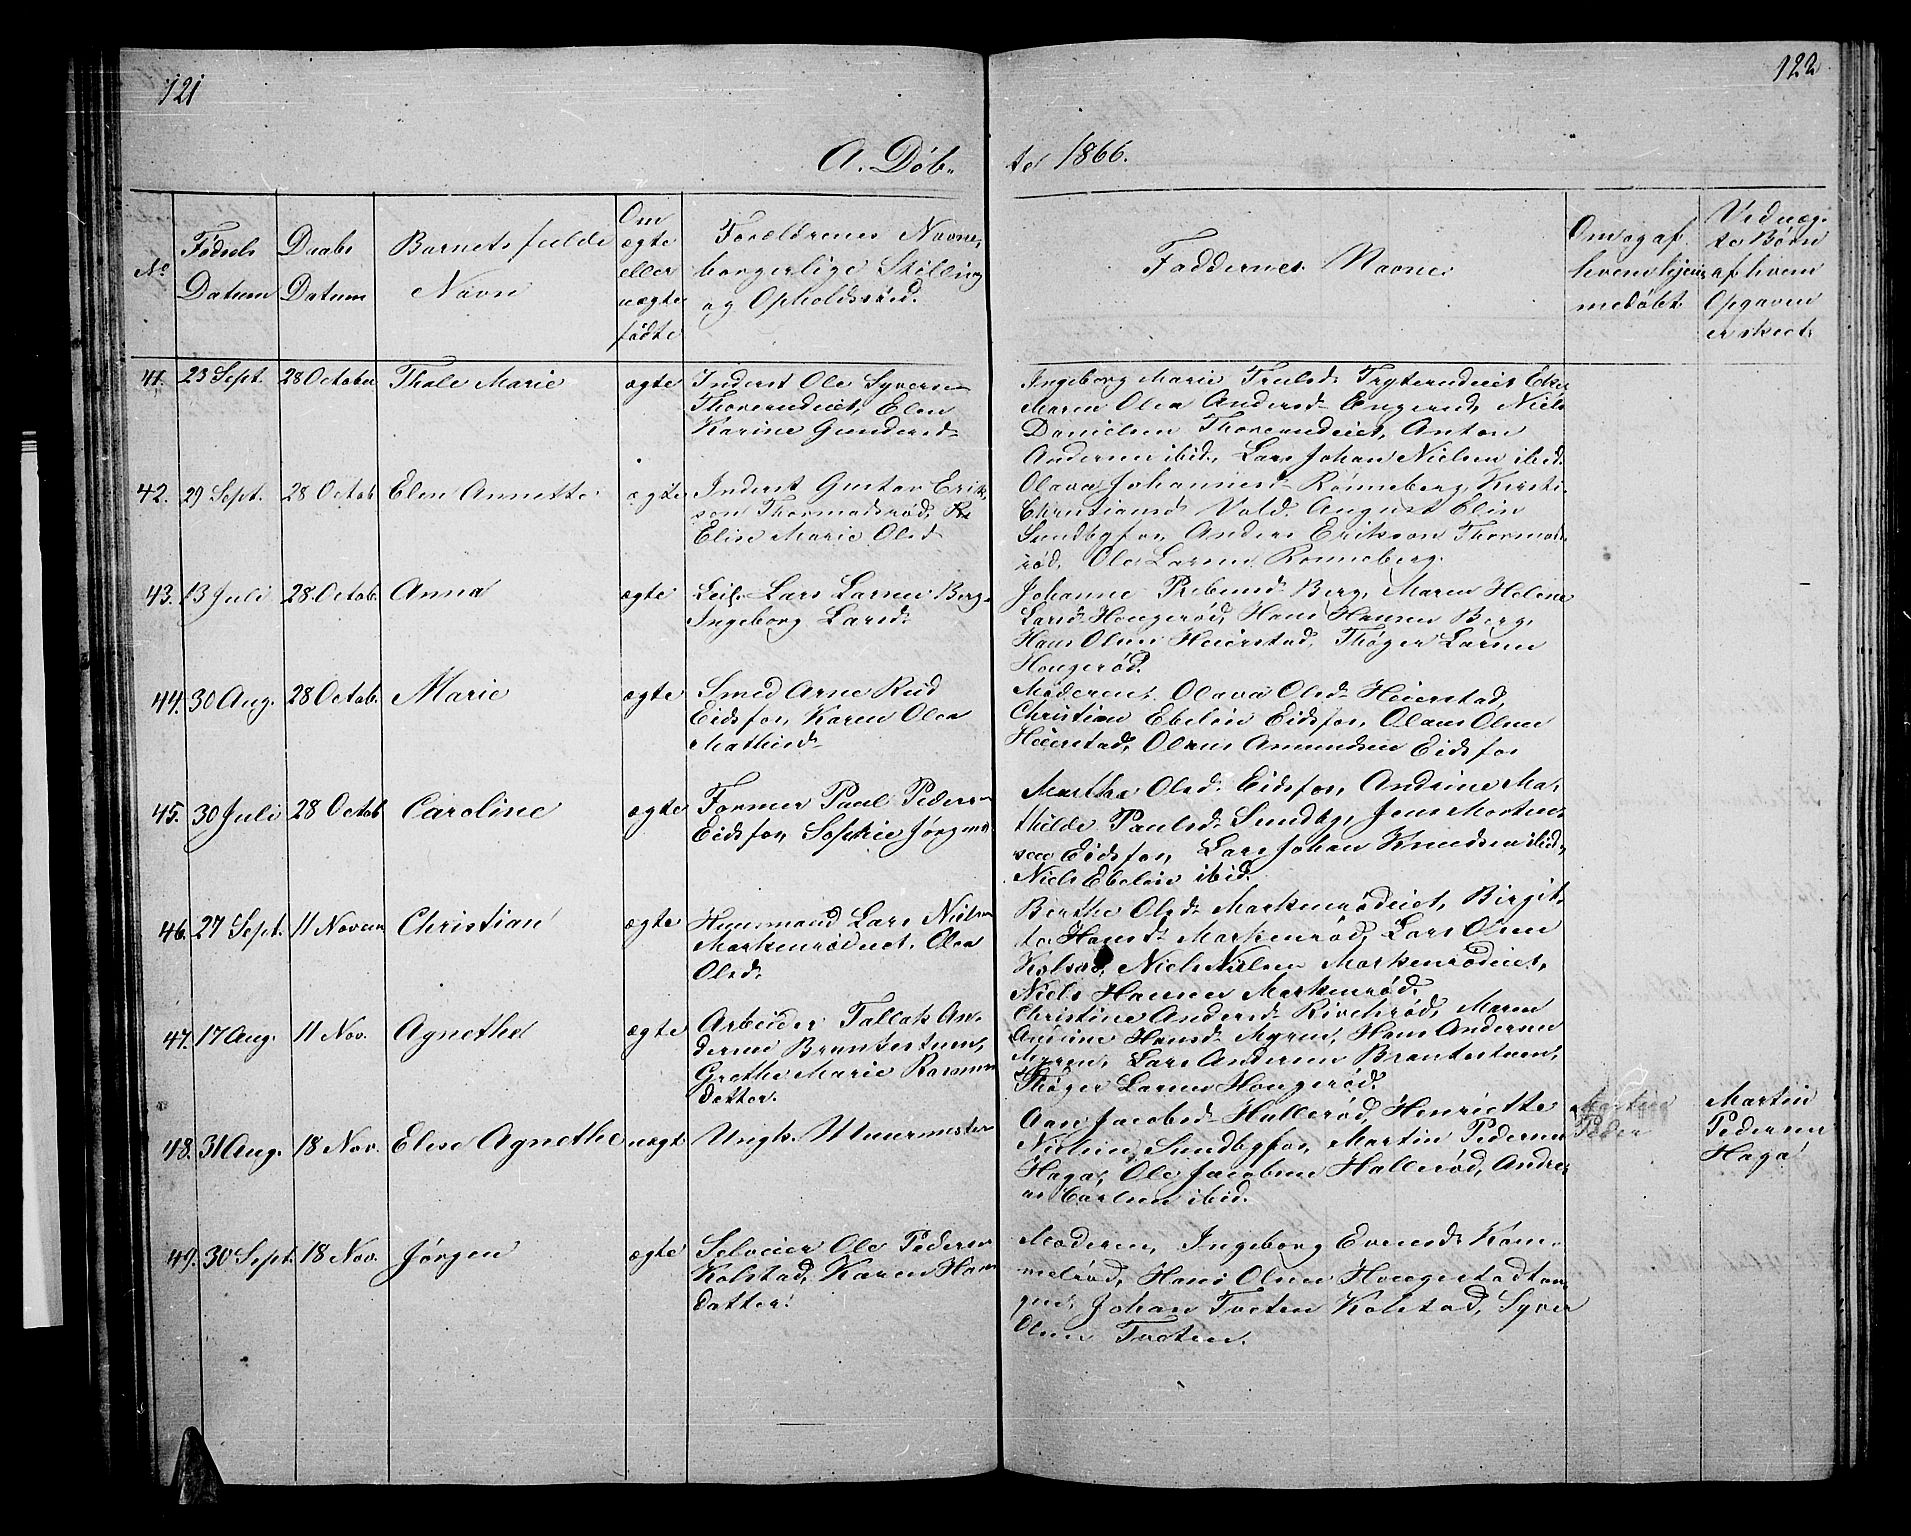 121
122
A. Døb-
te 1866.
No
Fødsels
Datum
Daabs
Datum
Barnets fulde
Navn
Om
ægte
eller
uægte
fødte
Forældrenes Navne,
borgerlige Stilling
og Opholdssted.
Faddernes Navne
Om og af
hvem hjem-
medøbt
Ved uæg-
te Børn
af hvem
Opgaven
er skeet.
41. 23 Sept. 28 October Thale Marie ægte
Inderst Ole Syversen
Thorerudeiet, Elen
Karine Gundersd
Ingeborg Marie Trulsd Tryterudeiet
Maren Olea Andersd Engerud, Niels
Danielsen Thorerudeiet, Anton
Andersen ibid, Lars Johan Nielsen ibid.
42. 29 Sept. 28 Octob Elen Annette ægte
Inderst Gustav Erik-
son Thormodsrød,
Elise Marie Olsd
Olava Johannesd Rønneberg, Kirsti
Christiansd Vold August Elin
Sundbyfos, Anders Erikson Thormods
rød, Ole Larsen Rønneberg.
43. 13 Juli 28 Octob. Anna ægte
Leil. Lars Larsen Berg
Ingeborg Larsd
Johanne Prebensd Berg, Maren Helene
Larsd Hougerød, Hans Hansen Berg,
Hans Olsen Heierstad, Thøger Larsen
Hougerød.
44. 30 Aug. 28 Octob. Marie ægte
Smed Arne Rud
Eidsfos, Karen Olea
Mathisd
Moderen, Olava Olsd Heierstad,
Christian Ebeløn Eidsfos, Olaus Olsen
Heierstad, Olaus Amundsen Eidsfos
45. 30 Juli 28 Octob Caroline ægte
Former Paul Pedersen
Eidsfos, Sophie Jørgensd
Marthe Olsd Eidsfos, Andrine Ma-
thilde Paulsd Sundby, Jens Morten-
sen Eidsfos, Lars Johan Knudsen ibid,
Niels Ebeløn ibid.
46. 27 Sept. 11 Novem Christian ægte
Huusmand Lars Nielsen
Markenrødeiet, Olea
Olsd
Berthe Olsd Markenrødeiet, Birgit-
te Hansd Markenrød, Lars Olsen
Kolsrød, Niels Nielsen Markenrødeiet,
Niels Hansen Markenrød.
47. 17 Aug. 11 Nov. Agnethe ægte
Arbeider Tallak An-
dersen Brantestuen,
Grethe Marie Rasmus
datter.
Christine Andersd Maren
Hansd Myren, Hans Andersen
Myren, Lars Andersen Brantestuen,
Thøger Larsen Hougerød.
48. 31 Aug. 18 Nov. Elise Agnethe uægt
Ungk. Muurmester
Jacobsd Hallerød, Henriette
Nielsen Sundbyfos, Martin Pedersen
Haga, Ole Jacobsen Hallerød, Andre-
as Carlsen ibid.
Martin
Peder
Martin
Pedersen
Haga
49. 30 Sept. 18 Nov. Jørgen ægte
Selveier Ole Pedersen
Kolstad, Karen Hans
datter.
Moderen, Ingeborg Evensd Kom-
melrød, Hans Olsen Haugestadtan-
gen, Johan Tveten Kolstad, Syver
Olsen Tveten.